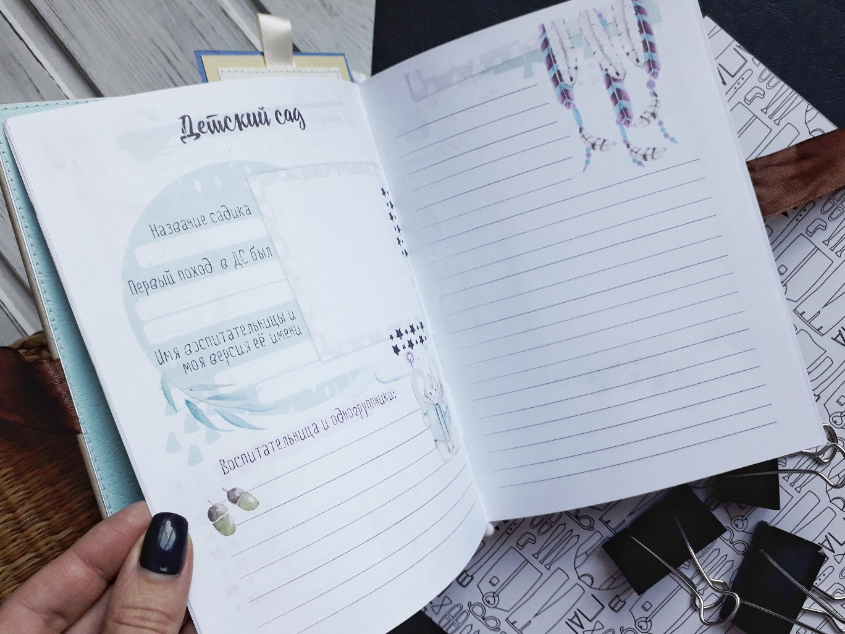 Детский сад
Название садика
Первый поход в ДС был
Имя воспитательницы и
моя версия её имени
Воспитательница и одногруппники: